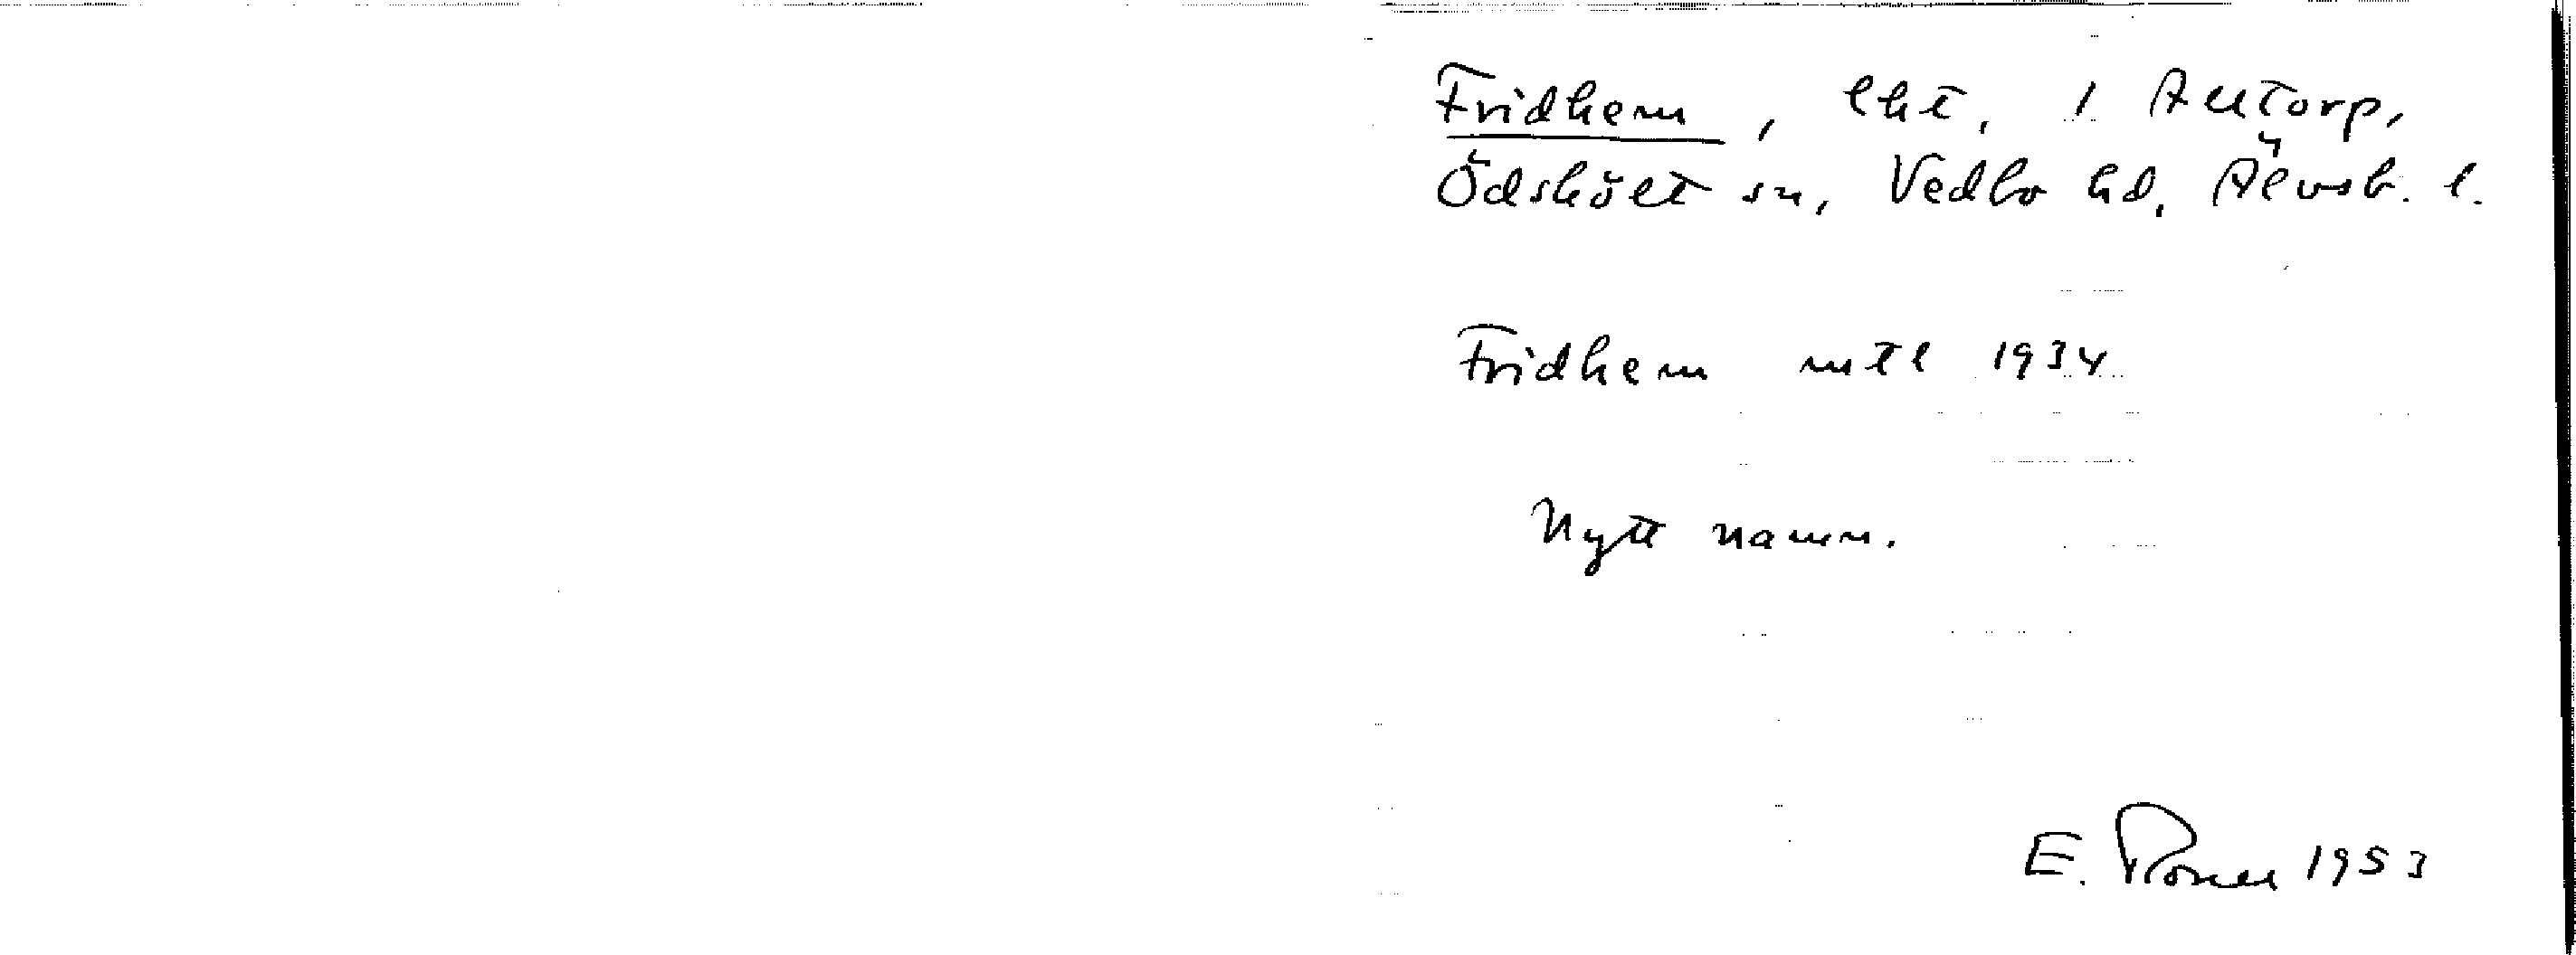 Fridhem, lht, i Alltorp,
Ödskölt sn, Vedbo hd, Älvsb. l.
Fridhem mtl 1934
Nytt namn.
E. 1953